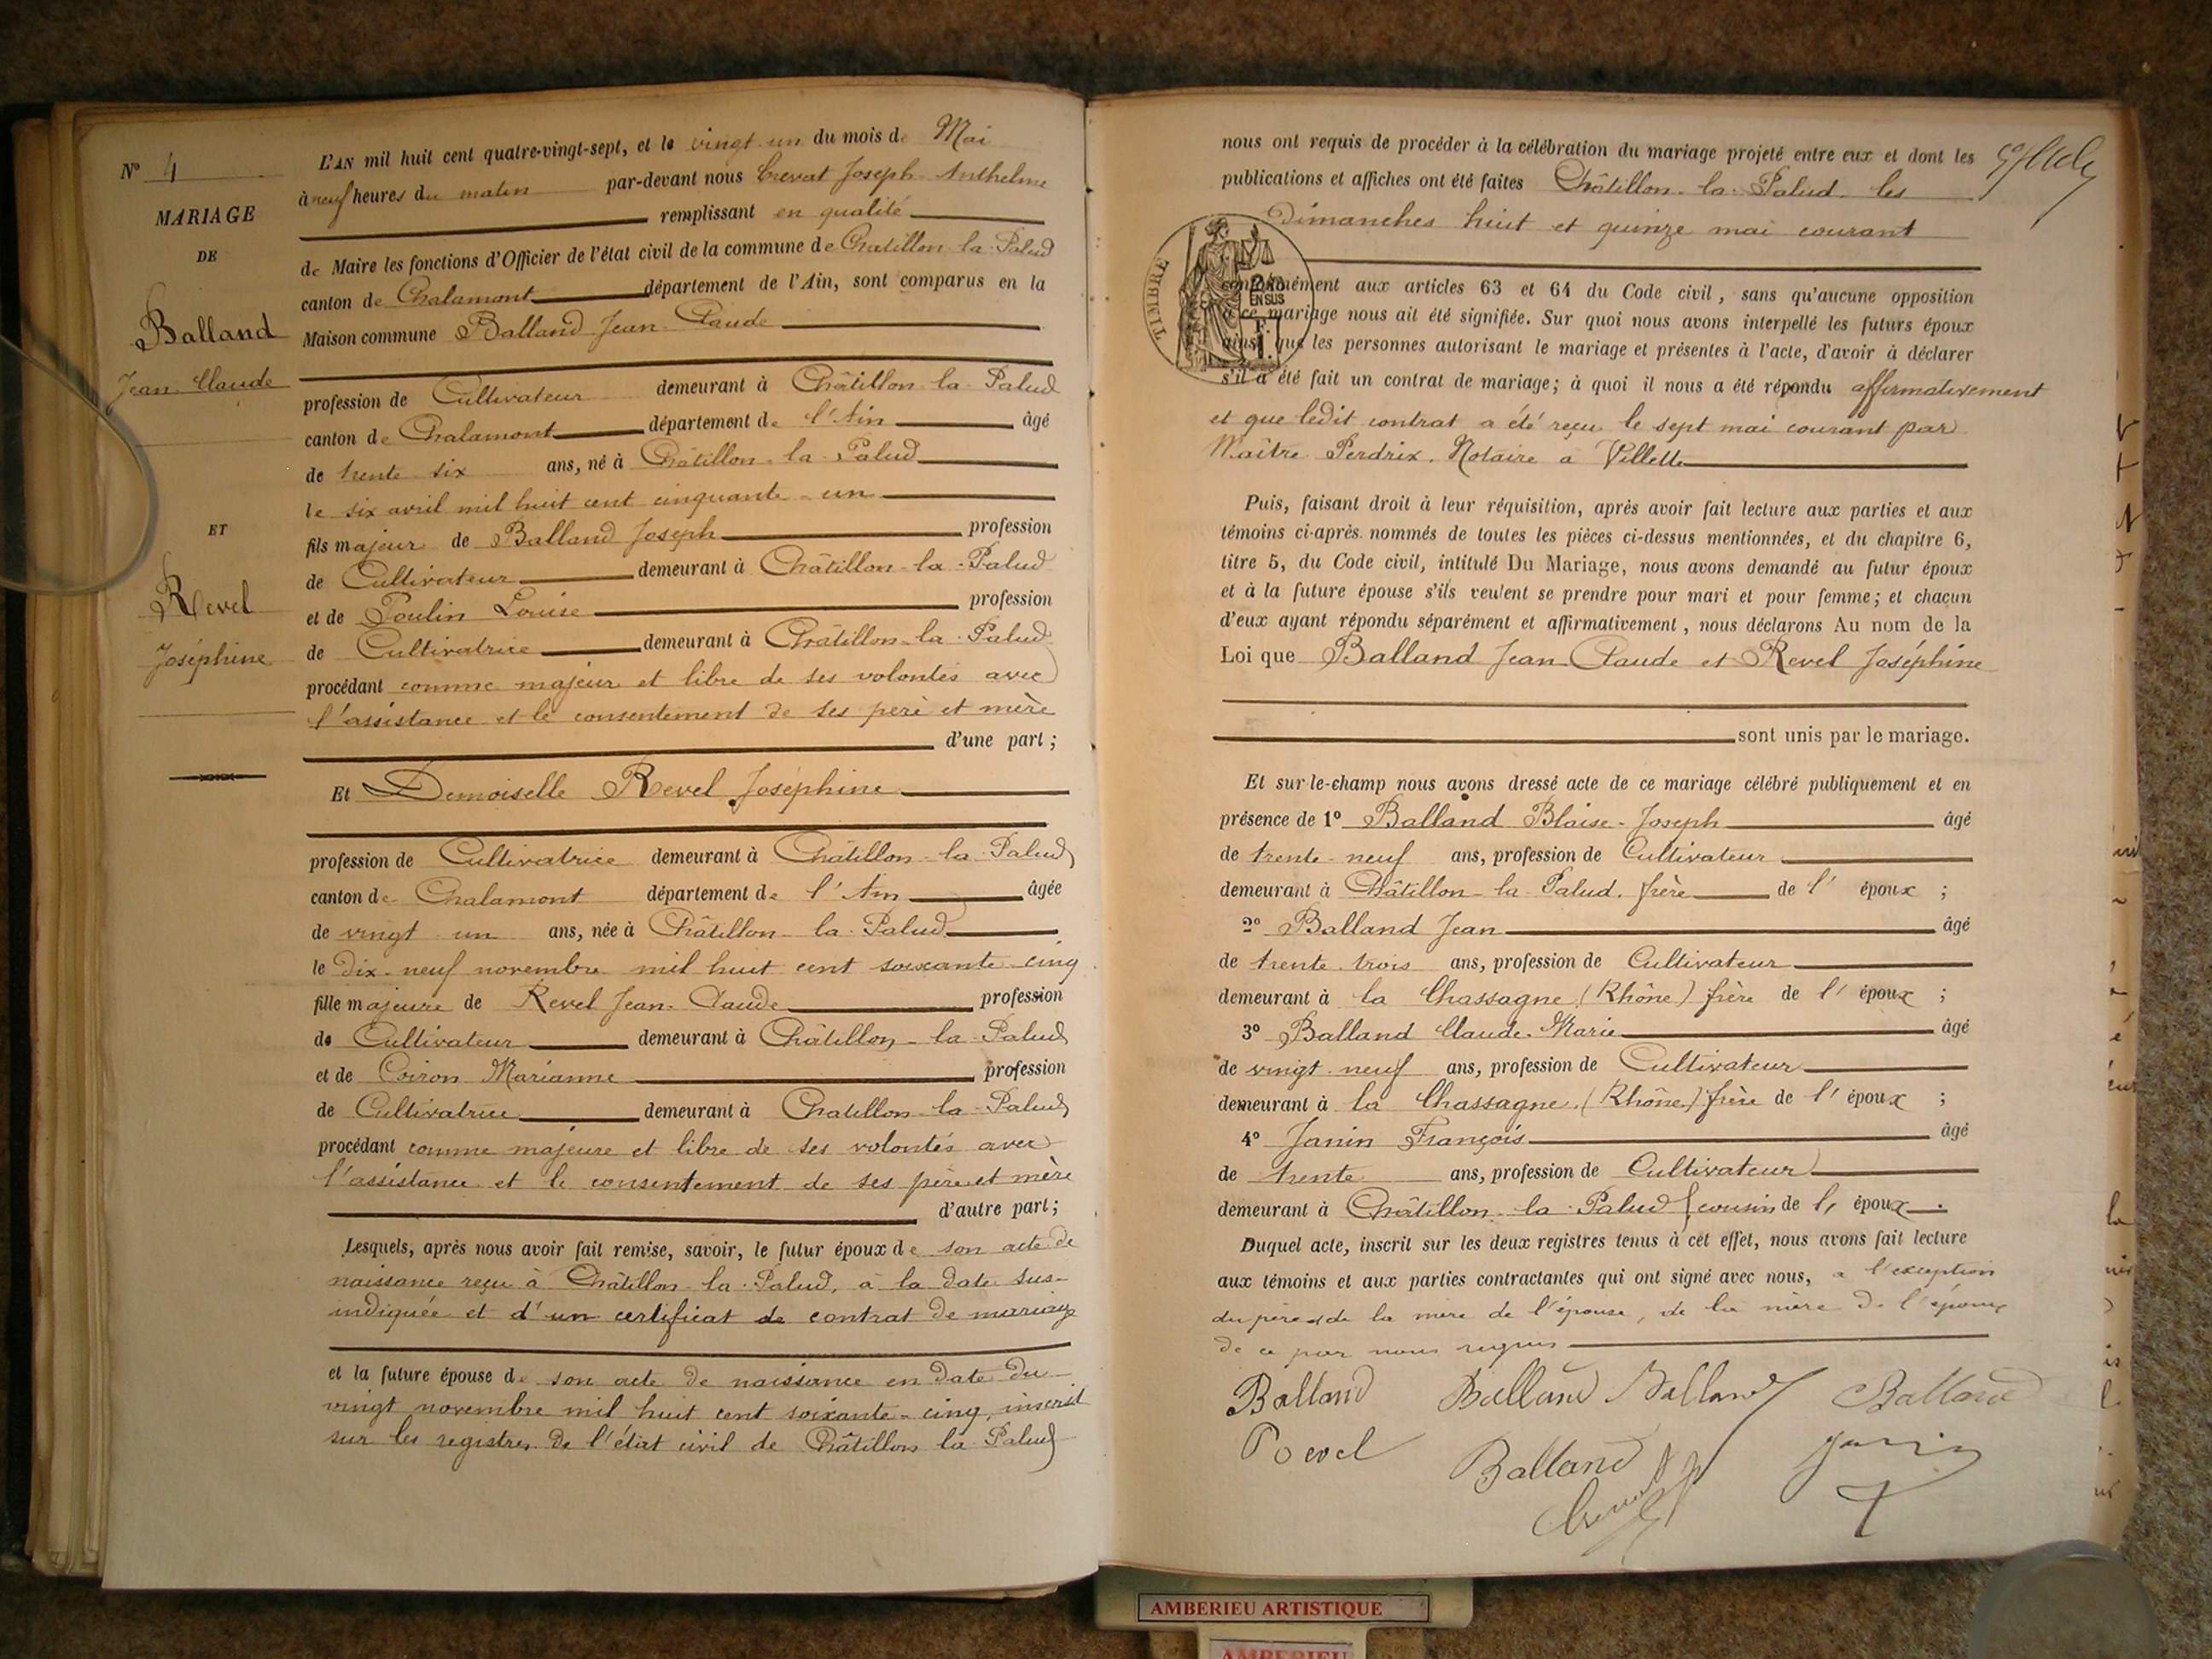 N° 4
MARIAGE
DE
Balland
Jean-Claude
ET
Revel
Joséphine
L'AN mil huit cent quatre-vingt-sept, et le vingt-un du mois de Mai
à neuf heures du matin par-devant nous Crevat Joseph-Anthelme
remplissant en qualité
de Maire les fonctions d'Officier de l'état civil de la commune de Chatillon-la-Palud
canton de Chalamont département de l'Ain, sont comparus en la
Maison commune Balland Jean-Claude
profession de Cultivateur demeurant à Châtillon-la-Palud
canton de Chalamont département de l'Ain âgé
de trente-six ans, né à Châtillon-la-Palud
le six avril mil huit cent cinquante-un
fils majeur de Balland Joseph profession
de Cultivateur demeurant à Châtillon-la-Palud
et de Poulin Louise profession
de Cultivatrice demeurant à Châtillon-la-Palud
procédant comme majeur et libre de ses volontés avec
l'assistance et le consentement de ses père et mère
d'une part ;
Et Demoiselle Revel Joséphine
profession de Cultivatrice demeurant à Châtillon-la-Palud
canton de Chalamont département de l'Ain âgée
de vingt-un ans, née à Châtillon-la-Palud
le dix-neuf novembre mil huit cent soixante-cinq
fille majeure de Revel Jean-Claude profession
de Cultivateur demeurant à Châtillon-la-Palud
et de Coiron Marianne profession
de Cultivatrice demeurant à Chatillon-la-Palud
procédant comme majeure et libre de ses volontés avec
l'assistance et le consentement de ses père et mère
d'autre part ;
Lesquels, après nous avoir fait remise, savoir, le futur époux de son acte de
naissance reçu à Châtillon-la-Palud, à la date sus-
indiquée et d'un certificat de contrat de mariage
et la future épouse de son acte de naissance en date du
vingt novembre mil huit cent soixante-cinq, inscrit
sur les registres de l'état civil de Châtillon la Palud
nous ont requis de procéder à la célébration du mariage projeté entre eux et dont les
publications et affiches ont été faites Châtillon-la-Palud les
Dimanches huit et quinze mai courant
TIMBRE
2/10
EN SUS
conformément aux articles 63 et 64 du Code civil, sans qu'aucune opposition
à ce mariage nous ait été signifiée. Sur quoi nous avons interpellé les futurs époux
ainsi que les personnes autorisant le mariage et présentes à l'acte, d'avoir à déclarer
s'il a été fait un contrat de mariage ; à quoi il nous a été répondu affirmativement
et que ledit contrat a été reçu le sept mai courant par
Maître Perdrix, Notaire à Villette
Puis, faisant droit à leur réquisition, après avoir fait lecture aux parties et aux
témoins ci-après nommés de toutes les pièces ci-dessus mentionnées, et du chapitre 6,
titre 5, du Code civil, intitulé Du Mariage, nous avons demandé au futur époux
et à la future épouse s'ils veulent se prendre pour mari et pour femme ; et chacun
d'eux ayant répondu séparément et affirmativement, nous déclarons Au nom de la
Loi que Balland Jean-Claude et Revel Joséphine
sont unis par le mariage.
Et sur-le-champ nous avons dressé acte de ce mariage célébré publiquement et en
présence de 1° Balland Blaise-Joseph âgé
de trente-neuf ans, profession de Cultivateur
demeurant à Châtillon-la-Palud, frère de l' époux ;
2° Balland Jean âgé
de trente-trois ans, profession de Cultivateur
demeurant à la Chassagne (Rhône) frère de l' époux ;
3° Balland Claude-Marie âgé
de vingt-neuf ans, profession de Cultivateur
demeurant à la Chassagne (Rhône) frère de l' époux ;
4° Janin François âgé
de trente ans, profession de Cultivateur
demeurant à Châtillon-la-Palud cousin de l' époux.
Duquel acte, inscrit sur les deux registres tenus à cet effet, nous avons fait lecture
aux témoins et aux parties contractantes qui ont signé avec nous, à l'exception
du père et de la mère de l'épouse, de la mère de l'époux
de ce par nous requis
Balland Balland Balland Balland
Revel Balland Janin
AMBERIEU ARTISTIQUE
AMBERIEU